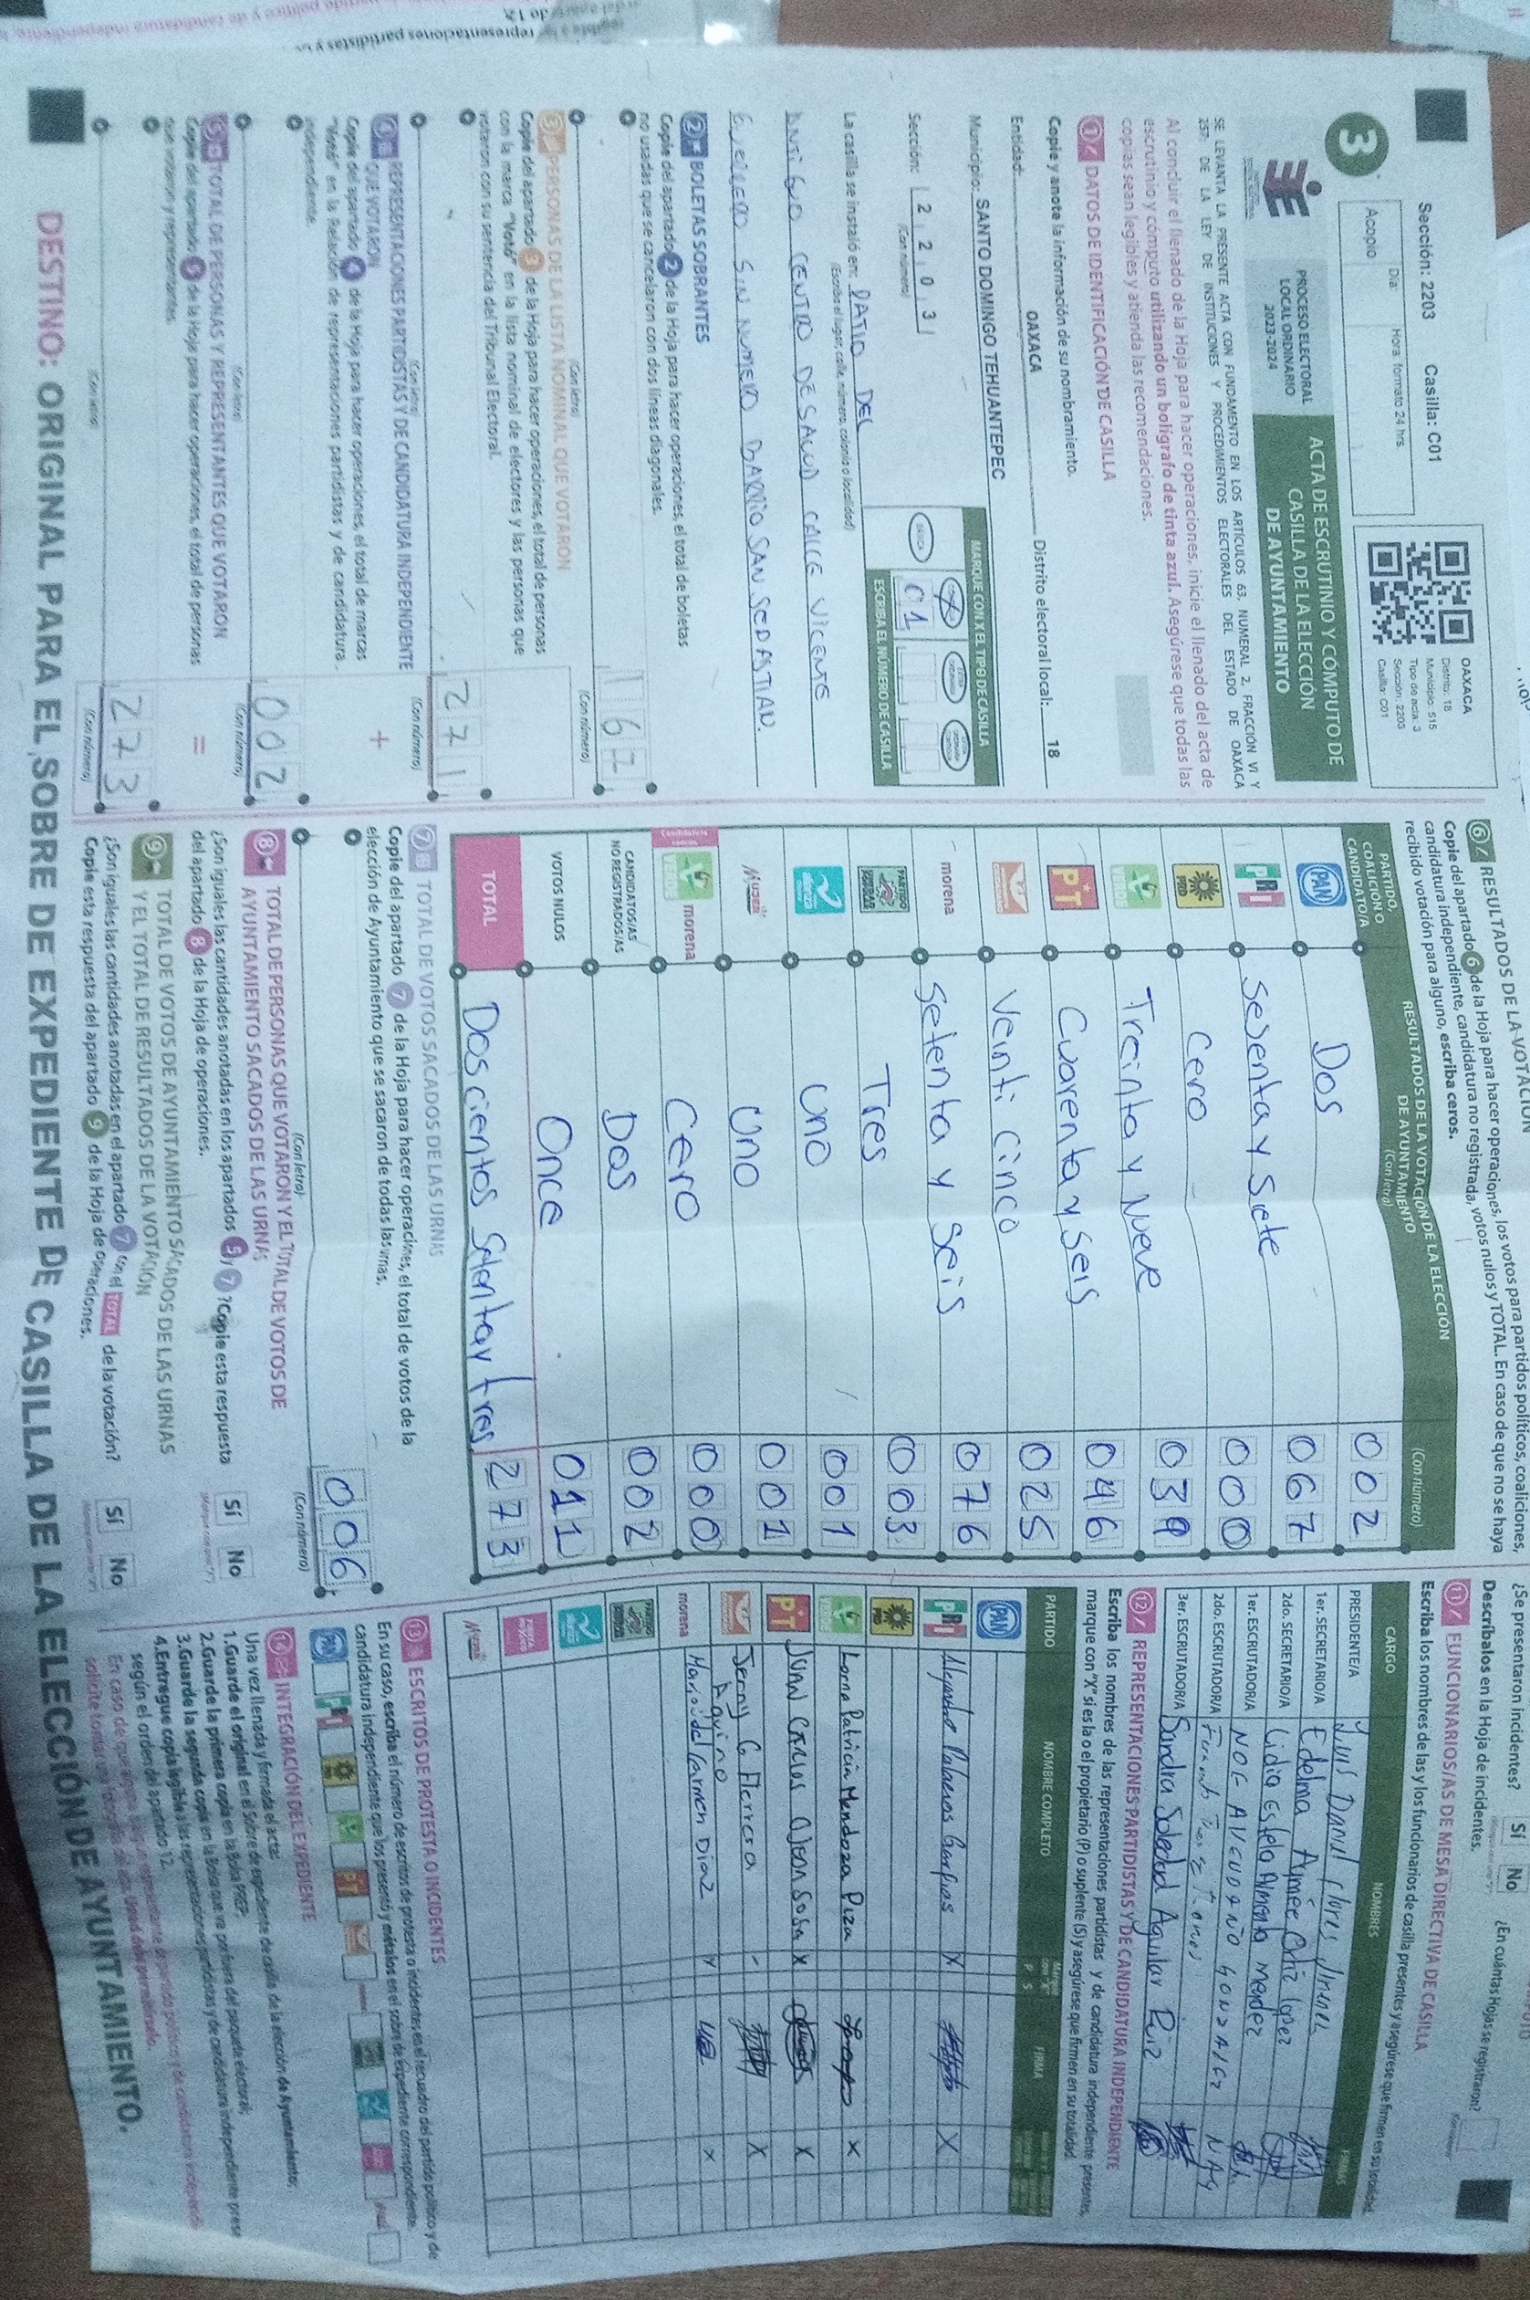 Sección: 2203 Casilla: C01
Día: Hora formato 24 hrs.
Acopio
OAXACA
Distrito: 18
Municipio: 515
Tipo de acta: 3
Sección: 2203
Casilla: C01
3
PROCESO ELECTORAL
LOCAL ORDINARIO
2023-2024
ACTA DE ESCRUTINIO Y CÓMPUTO DE
CASILLA DE LA ELECCIÓN
DE AYUNTAMIENTO
SE LEVANTA LA PRESENTE ACTA CON FUNDAMENTO EN LOS ARTÍCULOS 63, NUMERAL 2, FRACCIÓN VI Y
257; DE LA LEY DE INSTITUCIONES Y PROCEDIMIENTOS ELECTORALES DEL ESTADO DE OAXACA
Al concluir el llenado de la Hoja para hacer operaciones, inicie el llenado del acta de
escrutinio y cómputo utilizando un bolígrafo de tinta azul. Asegúrese que todas las
copias sean legibles y atienda las recomendaciones.
1 DATOS DE IDENTIFICACIÓN DE CASILLA
Copie y anote la información de su nombramiento.
Entidad: OAXACA Distrito electoral local: 18
Municipio: SANTO DOMINGO TEHUANTEPEC
MARQUE CON X EL TIPO DE CASILLA
Sección: 2 2 0 3
(Con número)
BÁSICA
01
ESCRIBA EL NÚMERO DE CASILLA
La casilla se instaló en: PATIO DEL
(Escriba el lugar, calle, número, colonia o localidad)
ANTIGUO CENTRO DE SALUD CALLE VICENTE
GUERRERO SIN NUMERO BARRIO SAN SEBASTIAN.
2 BOLETAS SOBRANTES
Copie del apartado 2 de la Hoja para hacer operaciones, el total de boletas
no usadas que se cancelaron con dos líneas diagonales.
167
(Con letra) (Con número)
3 PERSONAS DE LA LISTA NOMINAL QUE VOTARON
Copie del apartado 3 de la Hoja para hacer operaciones, el total de personas
con la marca "Votó" en la lista nominal de electores y las personas que
votaron con su sentencia del Tribunal Electoral.
271
(Con letra) (Con número)
4 REPRESENTACIONES PARTIDISTAS Y DE CANDIDATURA INDEPENDIENTE
QUE VOTARON
Copie del apartado 4 de la Hoja para hacer operaciones, el total de marcas
"Votó" en la Relación de representaciones partidistas y de candidatura
independiente.
+
002
(Con letra) (Con número)
5 TOTAL DE PERSONAS Y REPRESENTANTES QUE VOTARON
Copie del apartado 5 de la Hoja para hacer operaciones, el total de personas
que votaron y representantes.
=
273
(Con letra) (Con número)
6 RESULTADOS DE LA VOTACIÓN
Copie del apartado 6 de la Hoja para hacer operaciones, los votos para partidos políticos, coaliciones,
candidatura independiente, candidatura no registrada, votos nulos y TOTAL. En caso de que no se haya
recibido votación para alguno, escriba ceros.
PARTIDO,
COALICIÓN O
CANDIDATO/A
RESULTADOS DE LA VOTACIÓN DE LA ELECCIÓN
DE AYUNTAMIENTO
(Con letra) (Con número)
PAN Dos 002
PRI Sesenta y Siete 067
PRD Cero 000
VERDE Treinta y Nueve 039
PT Cuarenta y seis 046
Veinti cinco 025
morena Setenta y seis 076
Tres 003
nueva alianza Uno 001
Mujer Uno 001
VERDE morena Cero 000
CANDIDATOS/AS
NO REGISTRADOS/AS Dos 002
VOTOS NULOS Once 011
TOTAL Doscientos Setenta y tres 273
7 TOTAL DE VOTOS SACADOS DE LAS URNAS
Copie del apartado 7 de la Hoja para hacer operaciones, el total de votos de la
elección de Ayuntamiento que se sacaron de todas las urnas.
006
(Con letra) (Con número)
8 TOTAL DE PERSONAS QUE VOTARON Y EL TOTAL DE VOTOS DE
AYUNTAMIENTO SACADOS DE LAS URNAS
¿Son iguales las cantidades anotadas en los apartados 5 y 7? Copie esta respuesta
del apartado 8 de la Hoja de operaciones.
Sí No
9 TOTAL DE VOTOS DE AYUNTAMIENTO SACADOS DE LAS URNAS
Y EL TOTAL DE RESULTADOS DE LA VOTACIÓN
¿Son iguales las cantidades anotadas en el apartado 7 con el TOTAL de la votación?
Copie esta respuesta del apartado 9 de la Hoja de operaciones.
Sí No
¿Se presentaron incidentes? Sí No ¿En cuántas Hojas se registraron?
Descríbalos en la Hoja de incidentes.
11 FUNCIONARIOS/AS DE MESA DIRECTIVA DE CASILLA
Escriba los nombres de las y los funcionarios de casilla presentes y asegúrese que firmen en su totalidad.
CARGO NOMBRES FIRMAS
PRESIDENTE/A Luis Daniel Flores Jimenez
1er. SECRETARIO/A Edelma Aymée Ortiz lopez
2do. SECRETARIO/A Lidia Estela Almenta Mendez
1er. ESCRUTADOR/A NOE AVENDAÑO GONZALEZ NAG
2do. ESCRUTADOR/A
3er. ESCRUTADOR/A Sandra Soledad Aguilar Ruiz
12 REPRESENTACIONES PARTIDISTAS Y DE CANDIDATURA INDEPENDIENTE
Escriba los nombres de las representaciones partidistas y de candidatura independiente presentes,
marque con "X" si es la o el propietario (P) o suplente (S) y asegúrese que firmen en su totalidad.
PARTIDO NOMBRE COMPLETO P S FIRMA
PAN
PRI Alejandro Palacios Garfias X X
PRD
VERDE Lorna Patricia Mendoza Piza X
PT JUAN CARLOS OJEDA SOSA X X
Jenny G Herrera
Aquino X
morena Maria del Carmen Diaz X X
nueva alianza
Mujer
13 ESCRITOS DE PROTESTA O INCIDENTES
En su caso, escriba el número de escritos de protesta o incidentes en el recuadro del partido político y de
candidatura independiente que los presentó y métalos en el sobre de expediente correspondiente.
PAN PRI PT
14 INTEGRACIÓN DEL EXPEDIENTE
Una vez llenada y firmada el acta:
1.Guarde el original en el Sobre de expediente de casilla de la elección de Ayuntamiento;
2.Guarde la primera copia en la Bolsa PREP;
3.Guarde la segunda copia en la Bolsa que va por fuera del paquete electoral;
4.Entregue copia legible a las representaciones partidistas y de candidatura independiente presentes
según el orden del apartado 12.
DESTINO: ORIGINAL PARA EL SOBRE DE EXPEDIENTE DE CASILLA DE LA ELECCIÓN DE AYUNTAMIENTO.